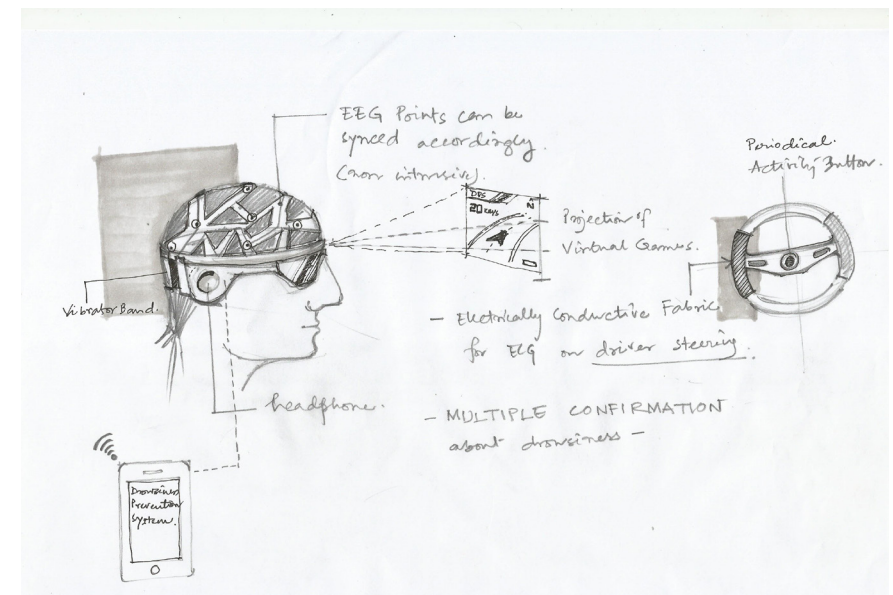 EEG Points can be
synced accordingly.
(non intrusive).
Periodical.
Activity Button.
DPS
N
20
Projection of
Virtual Games.
Vibrator Band.
- Electrically Conductive Fabric
for ECG on driver steering.
headphone.
- MULTIPLE CONFIRMATION
about drowsiness -
Drowsiness
Prevention
System.